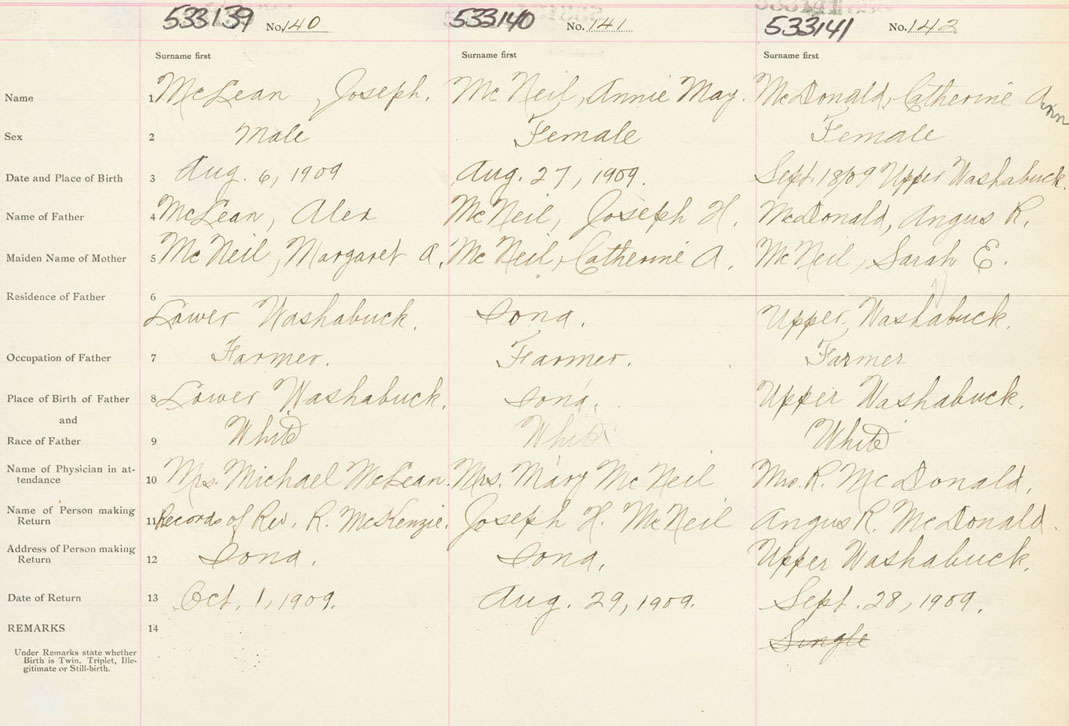 533139 No. 140 533140 No. 141 533141 No. 142
Surname first Surname first Surname first
Name 1 McLean, Joseph. McNeil, Annie May. McDonald, Catherine Ann
Sex 2 Male Female Female
Date and Place of Birth 3 Aug. 6, 1909 Aug. 27, 1909. Sept. 18/09 Upper Washabuck.
Name of Father 4 McLean, Alex McNeil, Joseph H. McDonald, Angus R.
Maiden Name of Mother 5 McNeil, Margaret A. McNeil, Catherine A. McNeil, Sarah E.
Residence of Father 6
Lower Washabuck. Iona. Upper Washabuck.
Occupation of Father 7 Farmer. Farmer. Farmer
Place of Birth of Father 8 Lower Washabuck. Iona. Upper Washabuck.
and
Race of Father 9 White White White
Name of Physician in at-
tendance 10 Mrs. Michael McLean. Mrs. Mary McNeil Mrs. R. McDonald.
Name of Person making
Return 11 Records of Rev. R. McKenzie. Joseph H. McNeil Angus R. McDonald.
Address of Person making
Return 12 Iona. Iona. Upper Washabuck.
Date of Return 13 Oct. 1, 1909. Aug. 29, 1909. Sept. 28, 1909.
REMARKS 14 Single
Under Remarks state whether
Birth is Twin, Triplet, Ille-
gitimate or Still-birth.